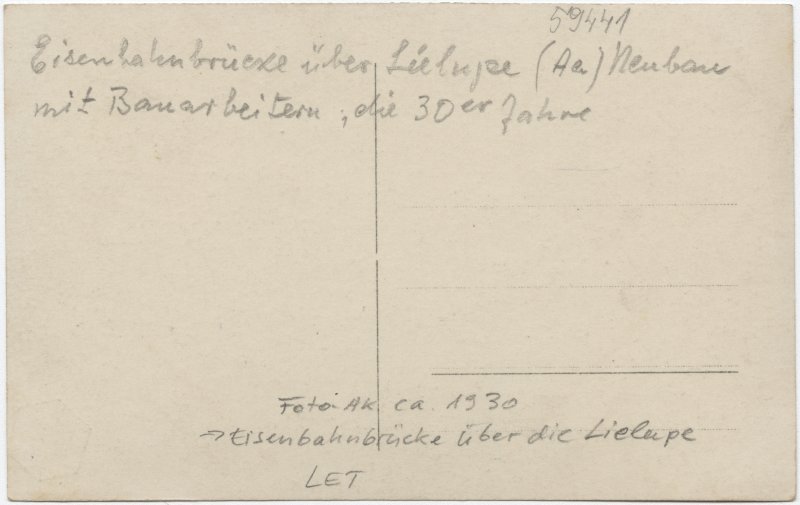 59441
Eisenbahnbrücke über Lielupe (Aa) Neubau
mit Bauarbeitern, die 30er Jahre
Foto-AK ca. 1930
→ Eisenbahnbrücke über die Lielupe
LET